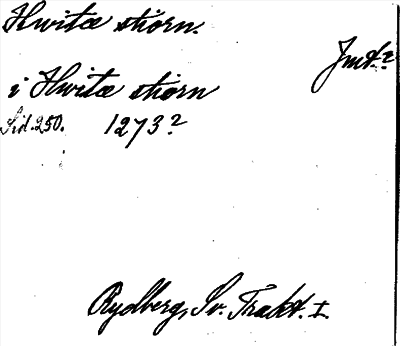 Hwitæ stiorn.
Jmt.?
i Hwitæ stiorn
Sid. 250. 1273?
Rydberg, Sv. Trakt. I.